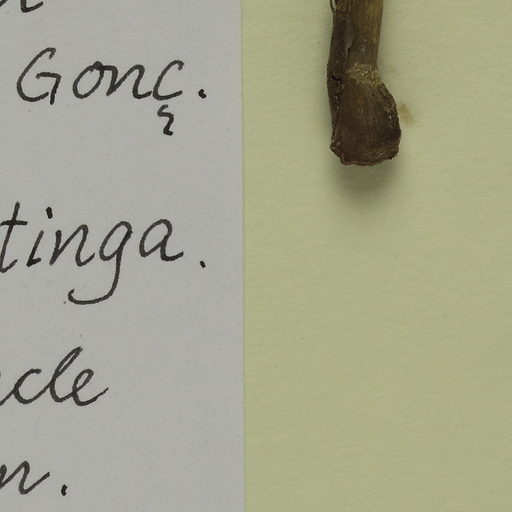 Gonç.
tinga.
cle
n.